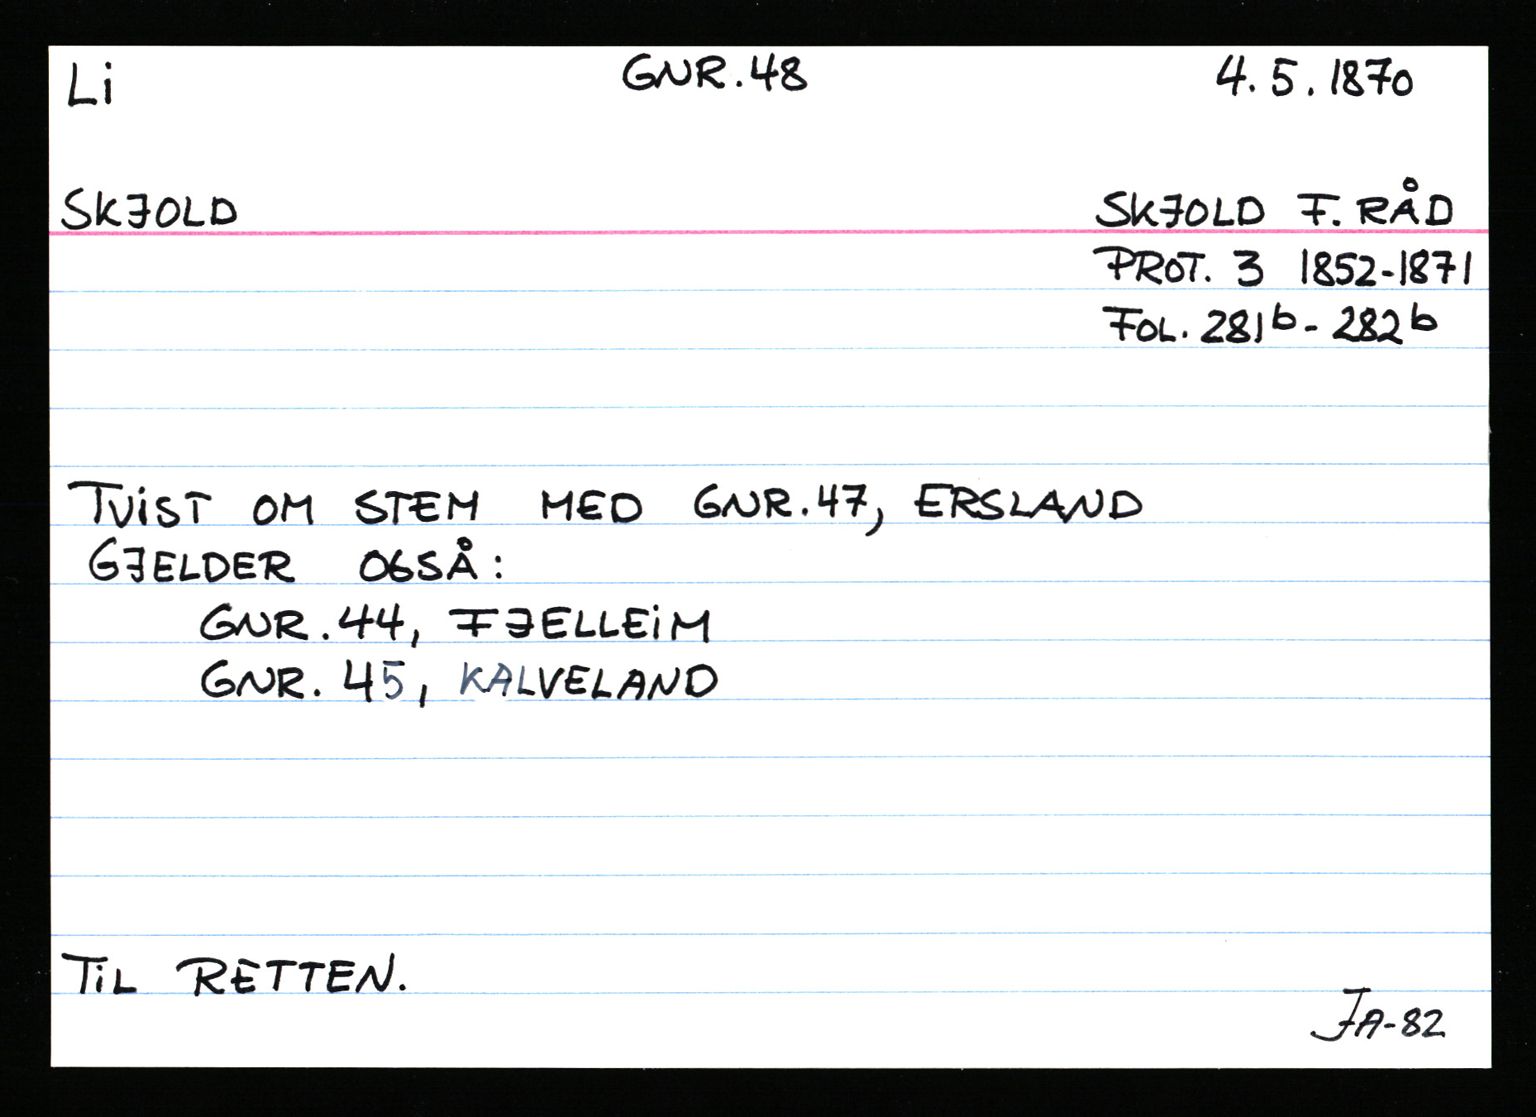 Li GNR.48 4.5.1870
SKJOLD SKJOLD F.RÅD
PROT. 3 1852-1871
FOL. 281b - 282b
TViST OM STEM MED GNR.47, ERSLAND
GJELDER OGSÅ:
GNR.44, FJELLEiM
GNR. 45, KALVELAND
TiL RETTEN.
JA-82